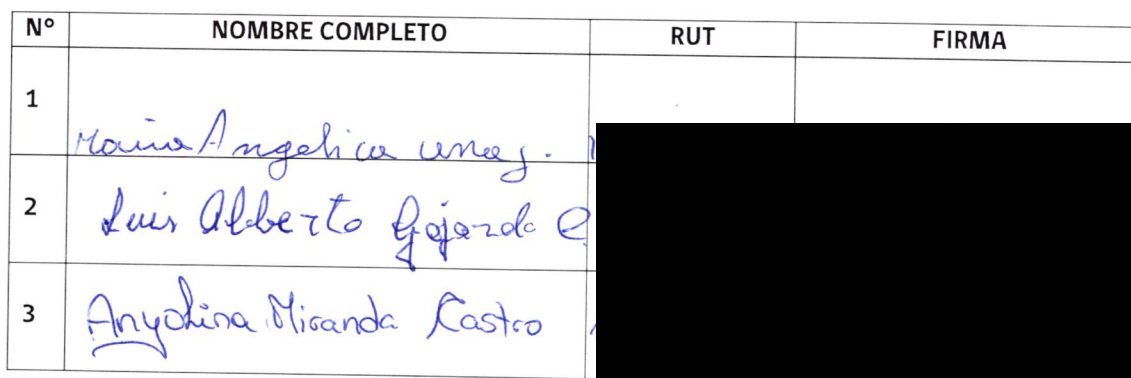 N° NOMBRE COMPLETO RUT FIRMA
1 Maria Angelica
2 Luis Alberto Gajardo
3 Anyelina Miranda Castro